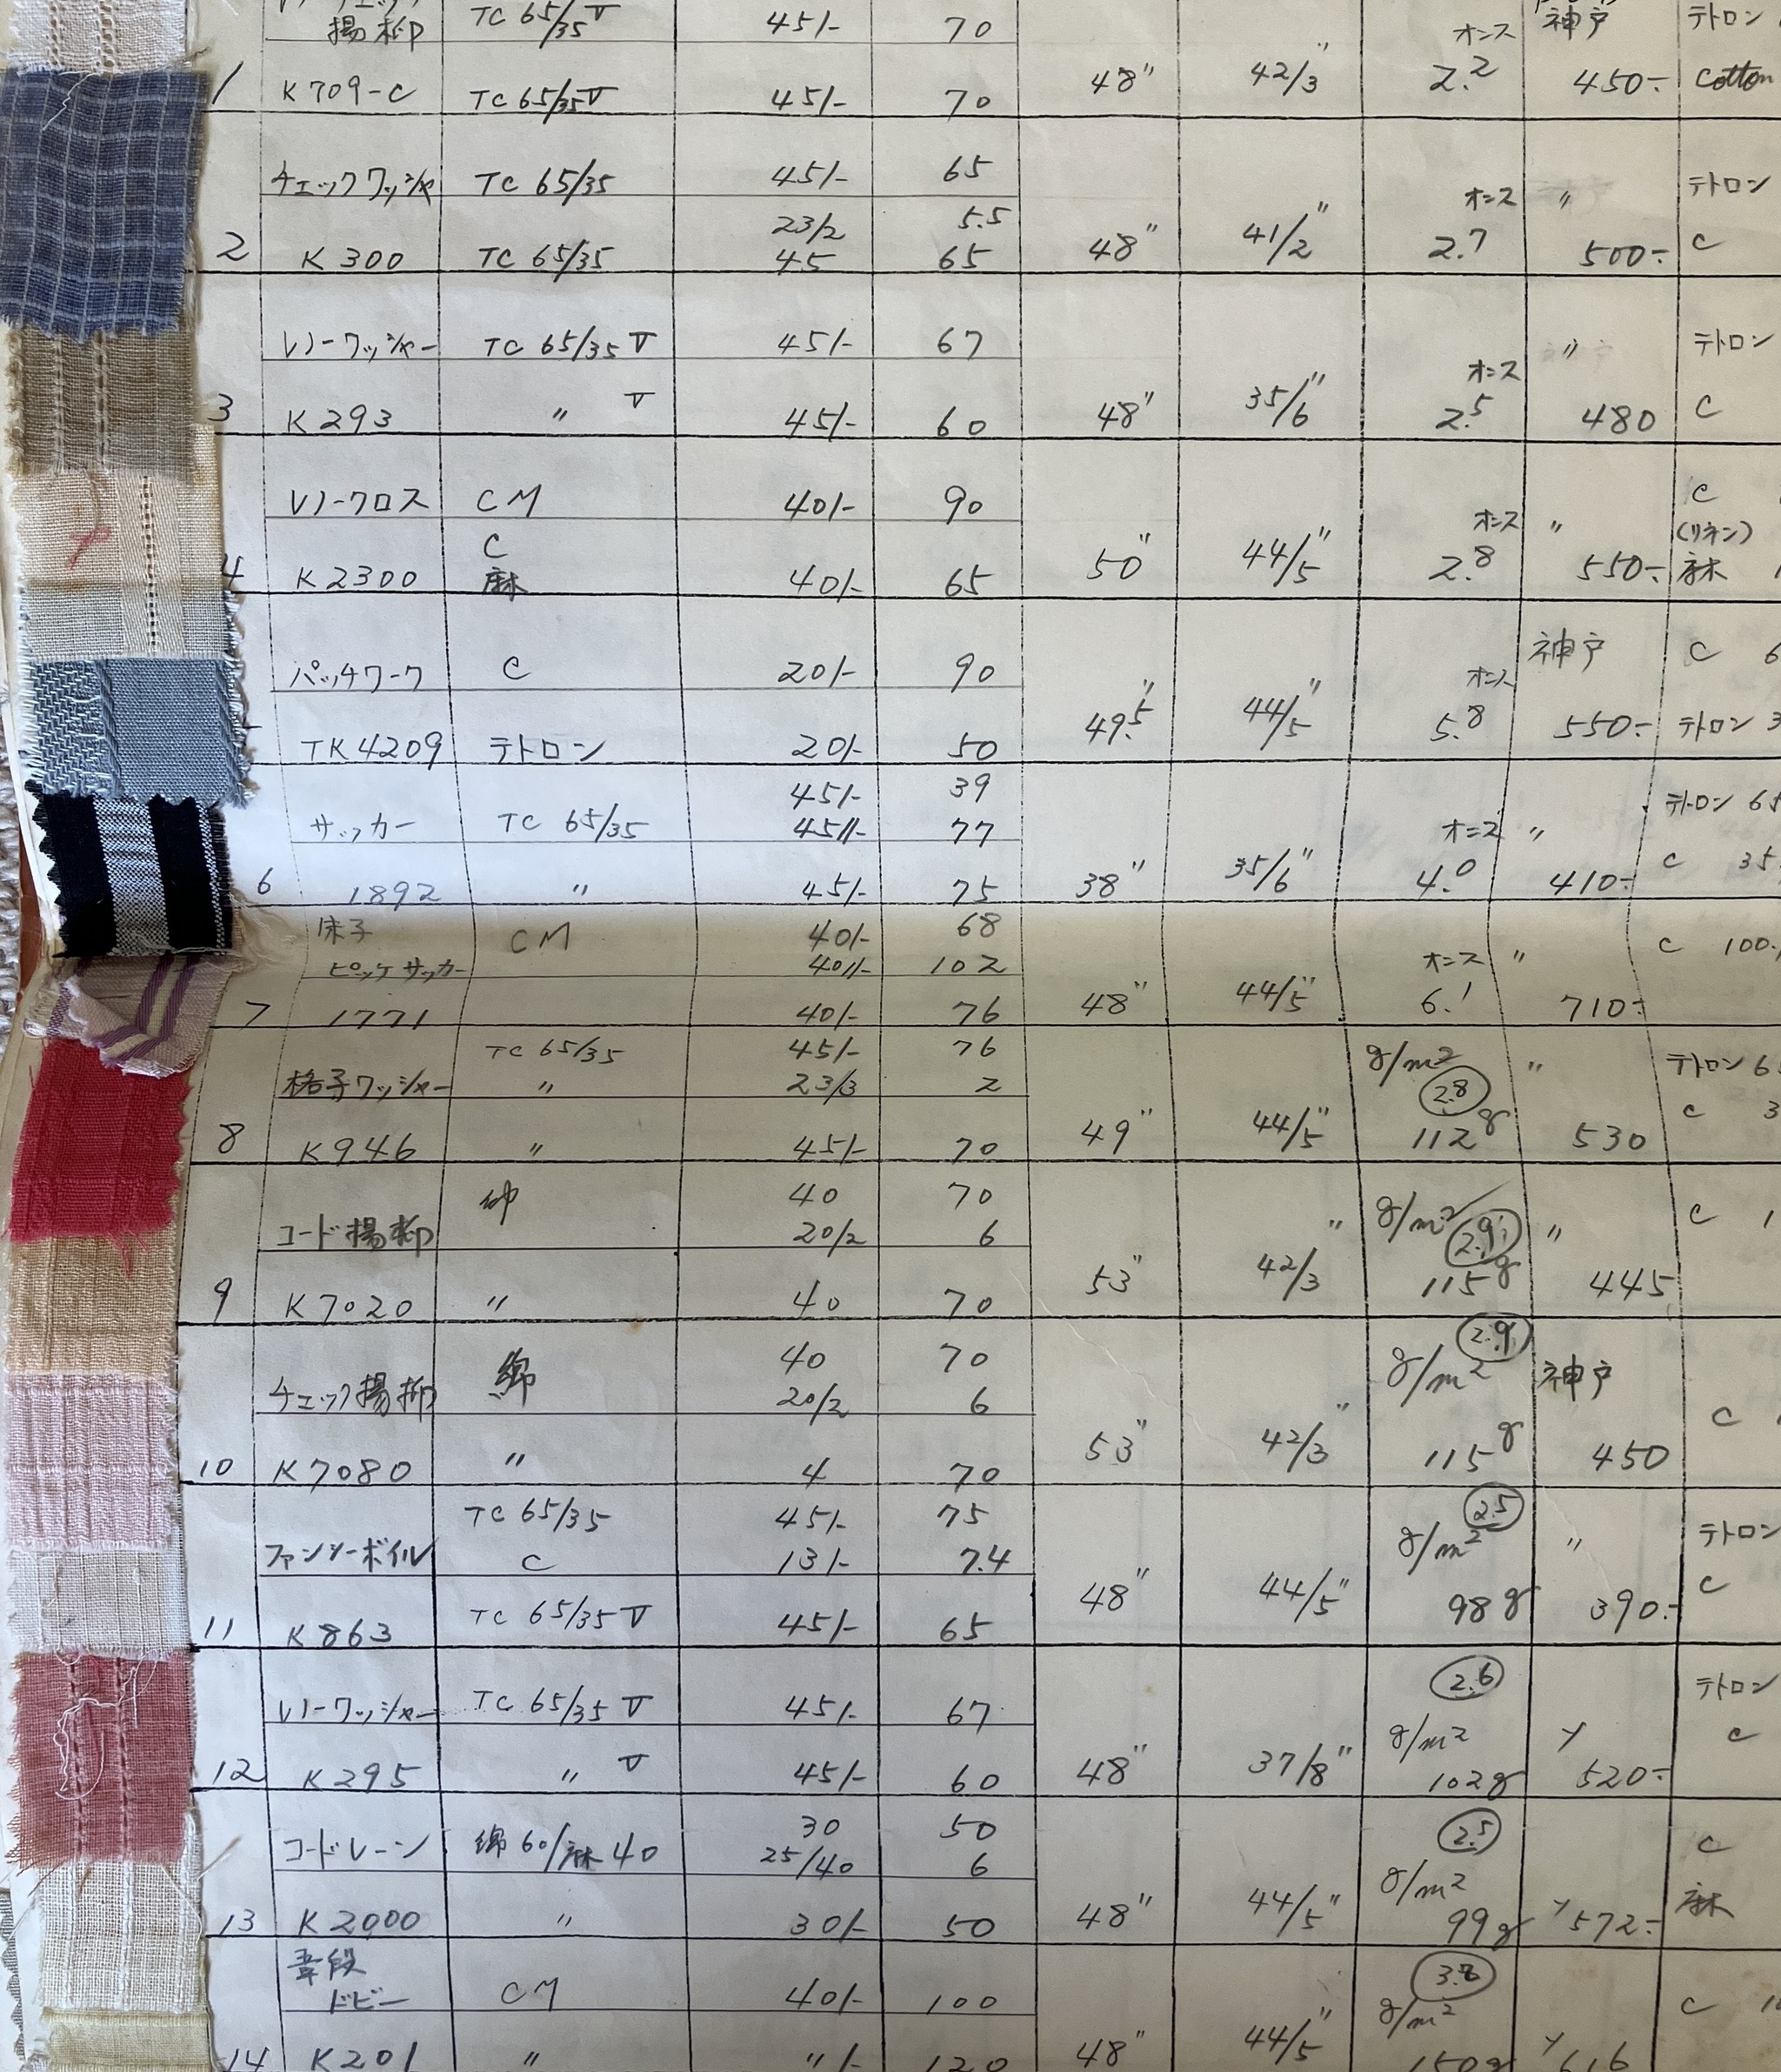 揚柳 TC 65/35 V 45/- 70 オンス 神戸 テトロン
1 K709-C TC 65/35 V 45/- 70 48" 42/3" 2.2 450.- Cotton
チェックワッシャー TC 65/35 45/- 65 オンス 〃 テトロン
23/2 5.5
2 K300 TC 65/35 45 65 48" 41/2" 2.7 500.- C
レノーワッシャー TC 65/35 V 45/- 67 オンス 〃 テトロン
3 K293 〃 V 45/- 60 48" 35/6" 2.5 480 C
レノークロス CM 40/- 90 オンス 〃 C
C (リネン)
4 K2300 麻 40/- 65 50" 44/5" 2.8 550.- 麻
パッチワーク C 20/- 90 オンス 神戸 C 6
TK4209 テトロン 20/- 50 49.5" 44/5" 5.8 550.- テトロン 3
45/- 39
サッカー TC 65/35 45// 77 オンス 〃 テトロン 65
6 1892 〃 45/- 75 38" 35/6" 4.0 410.- C 35
CM 40/- 68
ピッケサッカー 40// 102 オンス 〃 C 100
7 1771 40/- 76 48" 44/5" 6.1 710.-
TC 65/35 45/- 76 g/m2 〃 テトロン 6
格子ワッシャー 〃 23/3 2 2.8 C 3
8 K946 〃 45/- 70 49" 44/5" 112g 530
40 70 g/m2 C 1
コード揚柳 20/2 6 2.9 〃
9 K7020 〃 40 70 53" 42/3" 115g 445
綿 40 70 2.9 g/m2 神戸
チェック揚柳 20/2 6 C
10 K7080 〃 4 70 53" 42/3" 115g 450
TC 65/35 45/- 75 2.5 テトロン
ファンシーボイル C 13/- 7.4 g/m2 〃 C
11 K863 TC 65/35 V 45/- 65 48" 44/5" 98g 390.-
レノーワッシャー TC 65/35 V 45/- 67 2.6 テトロン
g/m2 C
12 K295 〃 V 45/- 60 48" 37/8" 102g Y 520.-
30 50 2.5 C
コードレーン 綿60/麻40 25/40 6 g/m2
13 K2000 〃 30/- 50 48" 44/5" 99g Y 572.- 麻
ドビー CM 40/- 100 g/m2 C
14 K201 〃 〃/- 120 48" 44/5" 150g Y 616